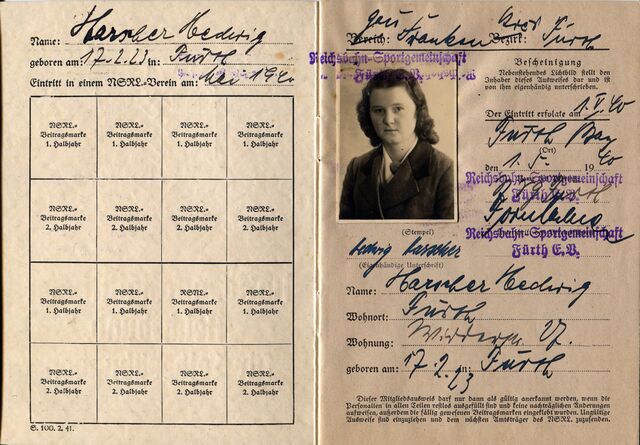 Name: Harscher Hedwig
geboren am: 17.2.23 in: Fürth
Eintritt in einem NSRL-Verein am: Mai 1940
NSRL- Beitragsmarke 1. Halbjahr NSRL- Beitragsmarke 1. Halbjahr NSRL- Beitragsmarke 1. Halbjahr NSRL- Beitragsmarke 1. Halbjahr
NSRL- Beitragsmarke 2. Halbjahr NSRL- Beitragsmarke 2. Halbjahr NSRL- Beitragsmarke 2. Halbjahr NSRL- Beitragsmarke 2. Halbjahr
NSRL- Beitragsmarke 1. Halbjahr NSRL- Beitragsmarke 1. Halbjahr NSRL- Beitragsmarke 1. Halbjahr NSRL- Beitragsmarke 1. Halbjahr
NSRL- Beitragsmarke 2. Halbjahr NSRL- Beitragsmarke 2. Halbjahr NSRL- Beitragsmarke 2. Halbjahr NSRL- Beitragsmarke 2. Halbjahr
S. 100. 2. 41.
Gau Kreis
Bereich: Franken Bezirk: Fürth
Reichsbahn-Sportgemeinschaft
Fürth E.V.
Bescheinigung
Nebenstehendes Lichtbild stellt den
Inhaber dieses Ausweises dar und ist
von ihm eigenhändig unterschrieben.
Der Eintritt erfolgte am 1. V. 40
Fürth Bay
(Ort)
den 1.5. 1940
Reichsbahn-Sportgemeinschaft
Fürth E.V.
Reichsbahn-Sportgemeinschaft
Fürth E.V.
(Stempel)
Hedwig Harscher
(Eigenhändige Unterschrift)
Name: Harscher Hedwig
Wohnort: Fürth
Wohnung:
geboren am: 17.2.23 in: Fürth
Dieser Mitgliedsausweis darf nur dann als gültig anerkannt werden, wenn die
Personalien in allen Teilen restlos ausgefüllt sind und keine nachträglichen Änderungen
aufweisen, außerdem die fällig gewesenen Beitragsmarken eingeklebt wurden. Ungültige
Ausweise sind einzuziehen und dem nächsten Amtsträger des NSRL. zuzusenden.